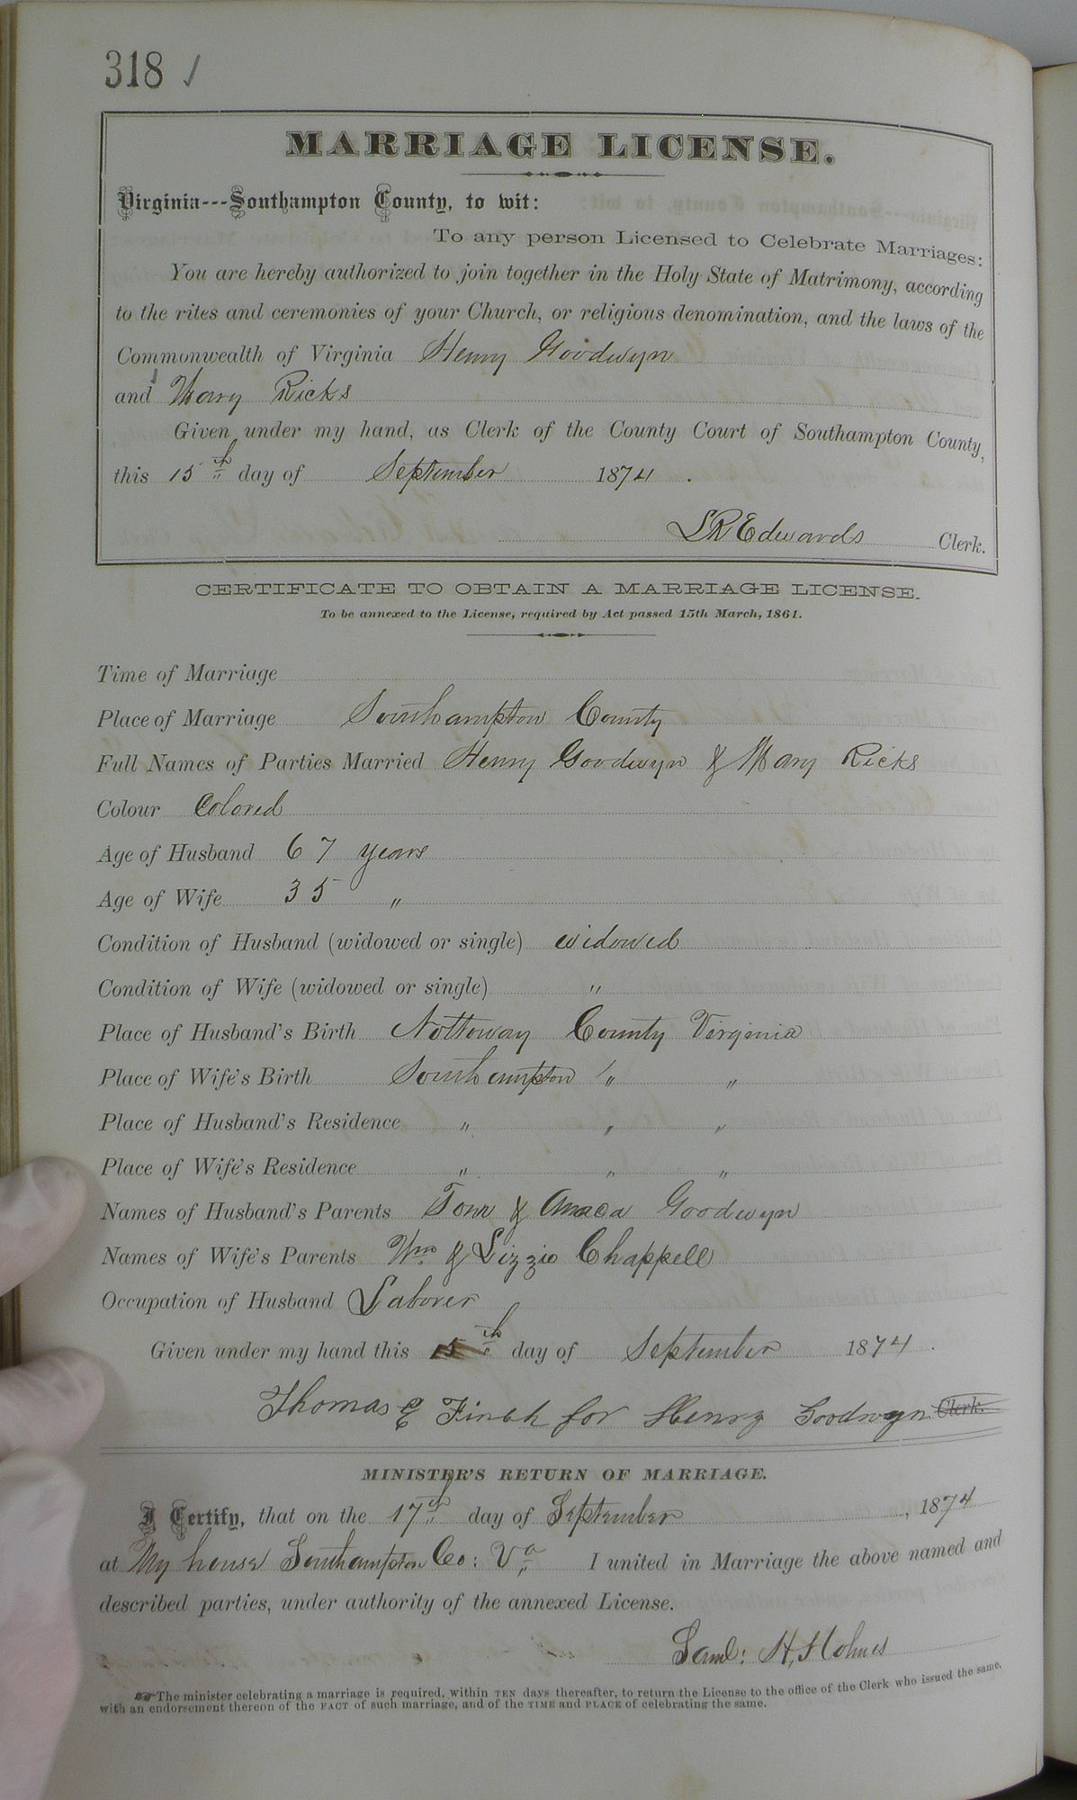 318 ✓
MARRIAGE LICENSE.
Virginia---Southampton County, to wit:
To any person Licensed to Celebrate Marriages:
You are hereby authorized to join together in the Holy State of Matrimony, according
to the rites and ceremonies of your Church, or religious denomination, and the laws of the
Commonwealth of Virginia Henry Goodwyn
and Mary Ricks
Given under my hand, as Clerk of the County Court of Southampton County,
this 15th day of September 1874.
LR Edwards Clerk.
CERTIFICATE TO OBTAIN A MARRIAGE LICENSE.
To be annexed to the License, required by Act passed 15th March, 1861.
Time of Marriage
Place of Marriage Southampton County
Full Names of Parties Married Henry Goodwyn & Mary Ricks
Colour Colored
Age of Husband 67 years
Age of Wife 35 "
Condition of Husband (widowed or single) widowed
Condition of Wife (widowed or single) "
Place of Husband's Birth Nottoway County Virginia
Place of Wife's Birth Southampton " "
Place of Husband's Residence " " "
Place of Wife's Residence " " "
Names of Husband's Parents Tom & Goodwyn
Names of Wife's Parents Wm & Lizzie Chappell
Occupation of Husband Laborer
Given under my hand this 15th day of September 1874.
Thomas E Finch for Henry Goodwyn Clerk.
MINISTER'S RETURN OF MARRIAGE.
I Certify, that on the 17th day of September, 1874
at My house Southampton Co: Va I united in Marriage the above named and
described parties, under authority of the annexed License.
Saml: H. Holmes
The minister celebrating a marriage is required, within TEN days thereafter, to return the License to the office of the Clerk who issued the same,
with an endorsement thereon of the FACT of such marriage, and of the TIME and PLACE of celebrating the same.